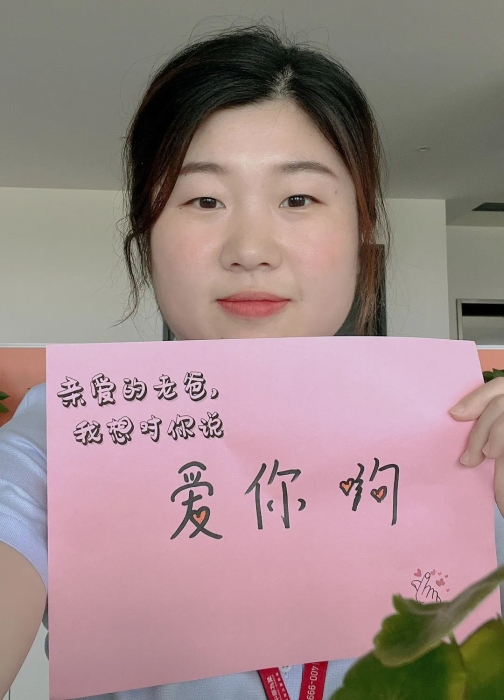 亲爱的老爸,
我想对你说
爱你哟
400-999